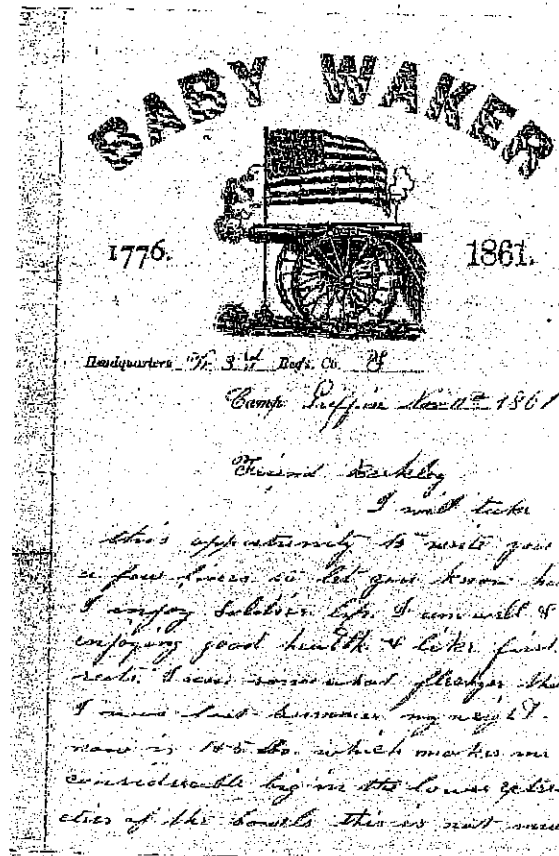 BABY WAKER
1776.
1861.
Headquarters Vt. 3rd Regt. Co.
Camp Griffin Nov 11th 1861
Friend
I will take
this opportunity to write you
a few lines to let you know
I enjoy Soldiers life I am well &
enjoying good health & like first
rate. I am somewhat fleshyer
I was last summer my weight
now is lbs. which makes me
considerable big in the lower
of the bowels this is not